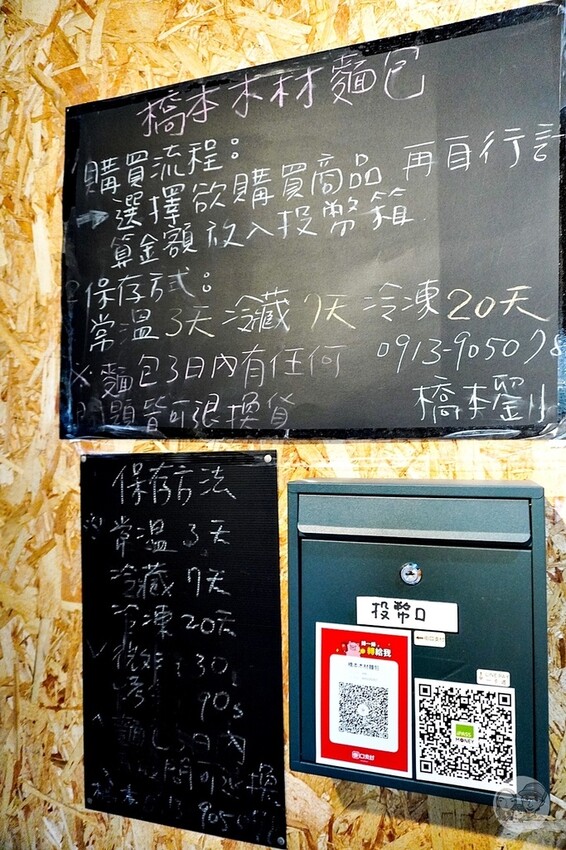 橋本木材麵包
購買流程：
→選擇欲購買商品 再自行計
算金額放入投幣箱
保存方式：
常溫3天 冷藏7天 冷凍20天
※麵包3日內有任何
問題皆可退換貨
0913-905098
橋本劉
保存方法
常溫 3天
冷藏 7天
冷凍 20天
微波：30
烤 90s
麵包3日內
905
投幣口
轉給我
橋本木材麵包
街口支付
iPASS
MONEY